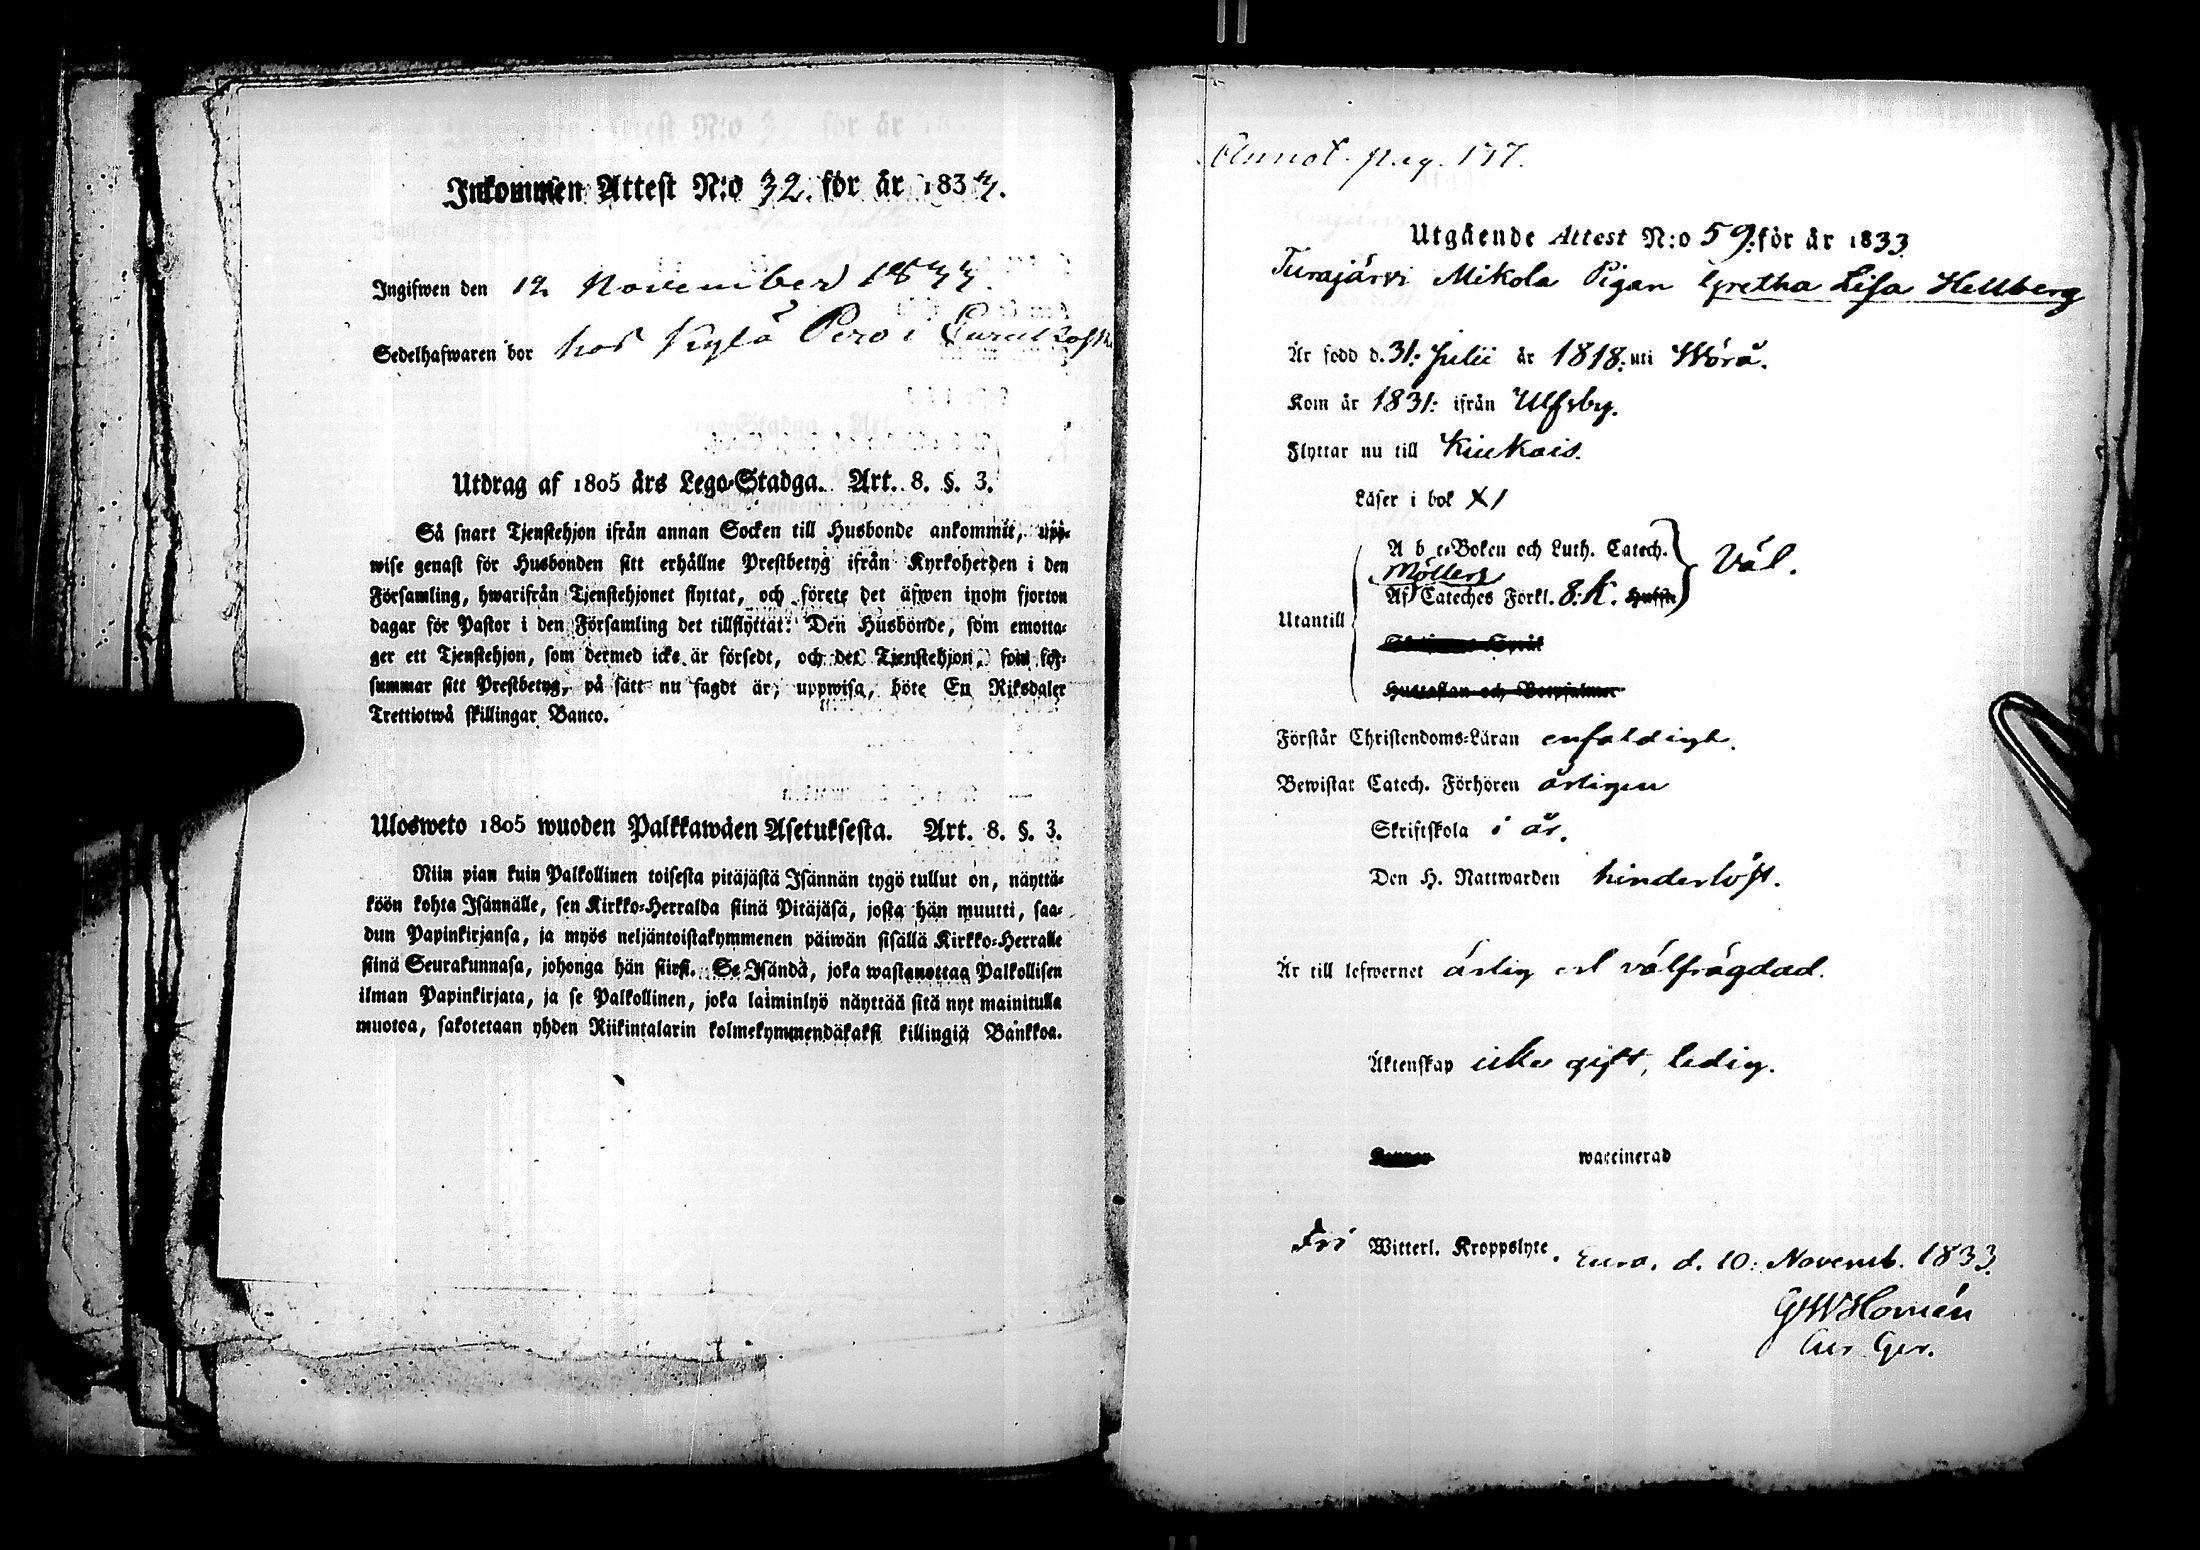 Inkommen Attest N:o 32. för år 1833.
Ingifwen den 12 November 1833.
Sedelhafwaren bor hos Kylä Pero i
Utdrag af 1805 års Lego-Stadga. Art. 8. §. 3.
Så snart Tjenstehjon ifrån annan Socken till Husbonde ankommit, upp-
wise genast för Husbonden sitt erhållne Prestbetyg ifrån Kyrkoherden i den
Församling, hwarifrån Tjenstehjonet flyttat, och förete det äfwen inom fjorton
dagar för Pastor i den Församling det tillflyttat: Den Husbonde, som emotta-
ger ett Tjenstehjon, som dermed icke är försedt, och det Tjenstehjon, som för-
summar sitt Prestbetyg, på sätt nu sagdt är, uppwisa, böte En Riksdaler
Trettiotwå skillingar Banco.
Ulosweto 1805 wuoden Palkkawäen Asetuksesta. Art. 8. §. 3.
Niin pian kuin Palkollinen toisesta pitäjästä Isännän tygö tullut on, näyttä-
köön kohta Isännälle, sen Kirkko-Herralda siinä Pitäjäsä, josta hän muutti, saa-
dun Papinkirjansa, ja myös neljäntoistakymmenen päiwän sisällä Kirkko-Herralle
siinä Seurakunnasa, johonga hän siirsi. Se Isändä, joka wastanottaa Palkollisen
ilman Papinkirjata, ja se Palkollinen, joka laiminlyö näyttää sitä nyt mainitulla
muotoa, sakotetaan yhden Riikintalarin kolmekymmendäkaksi killingiä Bankkoa.
Annot. pag. 177.
Utgående Attest N:o 59. för år 1833
Turajärvi Mikola Pigan Gretha Lisa Hellberg
Är född d. 31: Julii år 1818: uti Wörå.
Kom år 1831: ifrån Ulfsby.
Flyttar nu till Kiukais.
Läser i bok X1
A b c-Boken och Luth. Catech.
Väl.
Möllers
Af Cateches Förkl. 8: K. Hufst.
Utantill
Hustaflan och Botpsalmer
Förstår Christendoms-Läran enfaldigt.
Bewistat Catech. Förhören årligen
Skriftskola i år.
Den H. Nattwarden hinderlöst.
Är till lefwernet ärlig och välfrägdad.
Äktenskap icke gift, ledig.
waccinerad
Fri Witterl. Kroppslyte. Eura, d. 10: Novemb. 1833.
GWHomén